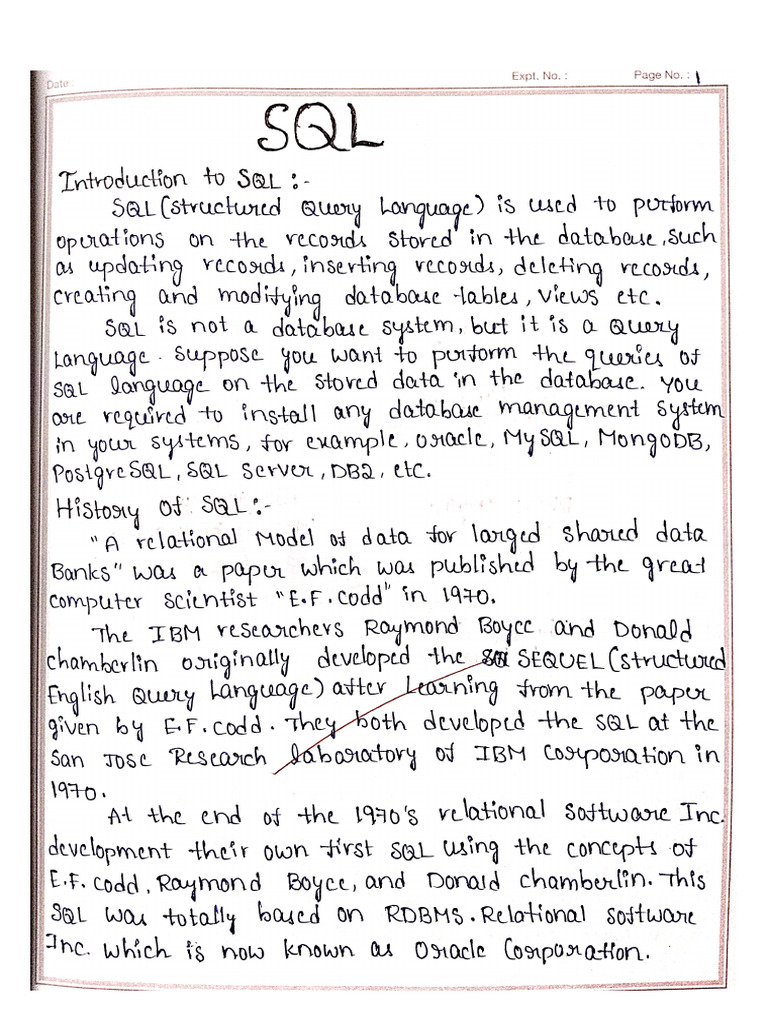 Date :
Expt. No. :
Page No. : 1
SQL
Introduction to SQL :-
SQL (Structured Query Language) is used to perform
operations on the records stored in the database, such
as updating records, inserting records, deleting records,
creating and modifying database tables, views etc.
SQL is not a database system, but it is a Query
Language. Suppose you want to perform the queries of
SQL language on the stored data in the database. You
are required to install any database management system
in your systems, for example, Oracle, MySQL, MongoDB,
PostgreSQL, SQL Server, DB2, etc.
History of SQL :-
"A relational Model of data for larged shared data
Banks" was a paper which was published by the great
computer scientist "E.F. Codd" in 1970.
The IBM researchers Raymond Boyce and Donald
chamberlin originally developed the SEQUEL (structured
English Query Language) after Learning from the paper
given by E.F. Codd. They both developed the SQL at the
San Jose Research laboratory of IBM Corporation in
1970.
At the end of the 1970's relational software Inc.
development their own first SQL using the concepts of
E.F. Codd, Raymond Boyce, and Donald chamberlin. This
SQL was totally based on RDBMS. Relational software
Inc. which is now known as Oracle Corporation.